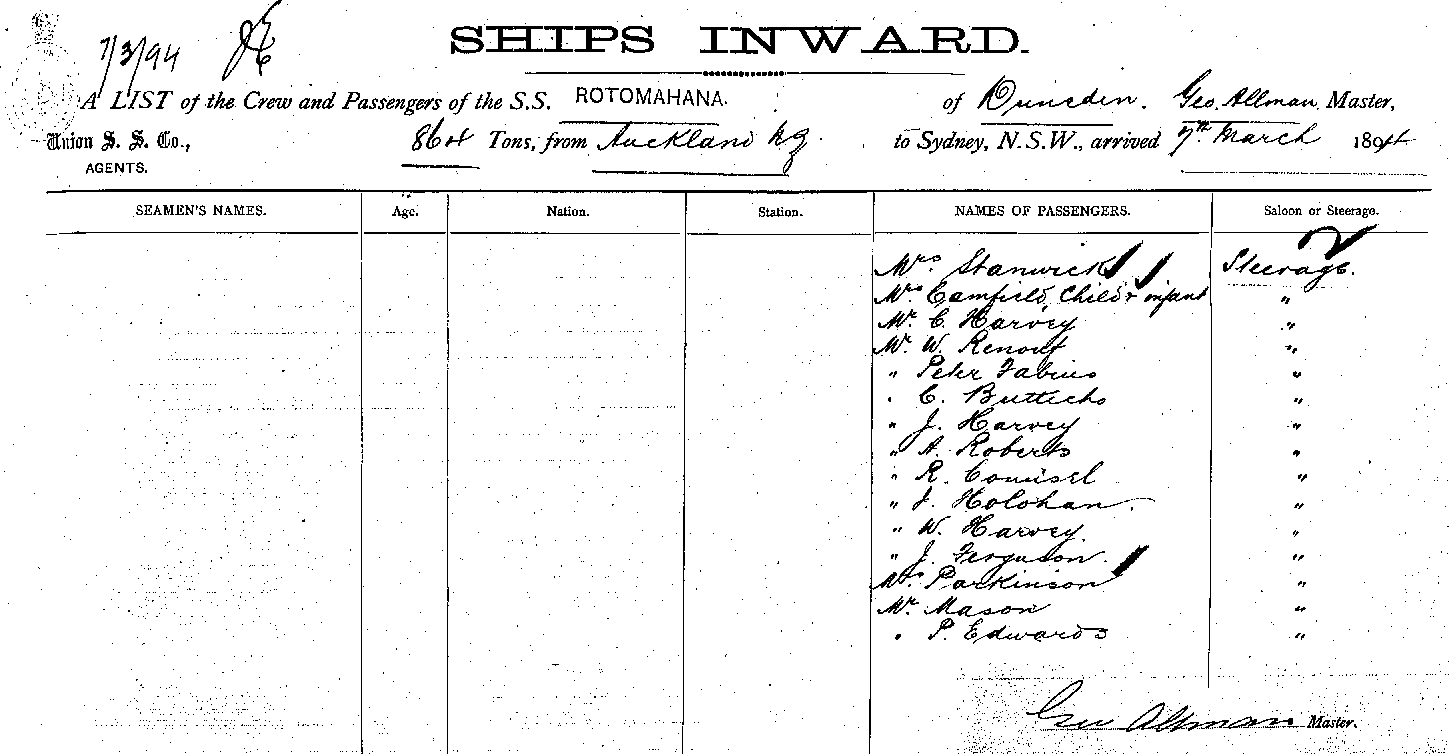 7/3/94
SHIPS INWARD.
A LIST of the Crew and Passengers of the S.S. ROTOMAHANA. of Dunedin. Geo. Allman, Master,
Union S. S. Co., 864 Tons, from Auckland NZ. to Sydney, N.S.W., arrived 7th March 1894
AGENTS.
SEAMEN'S NAMES. Age. Nation. Station. NAMES OF PASSENGERS. Saloon or Steerage.
Mrs. Stanwick Steerage.
Mrs Camfield, Child & infant "
Mr. C. Harvey "
Mr. W. Renouf "
" Peter Fabius "
" C. "
" J. Harvey "
" A. Roberts "
" R. "
" J. Holohan. "
" W. Harvey. "
" J. Ferguson. "
Mrs. Parkinson "
Mr. Mason "
" P. Edwards "
Geo Allman Master.